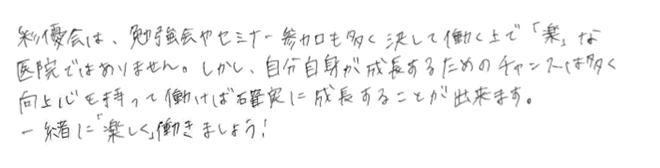 彩優会は、勉強会やセミナー参加も多く決して働く上で「楽」な
医院ではありません。しかし、自分自身が成長するためのチャンスは多く
向上心を持って働けば確実に成長することが出来ます。
一緒に「楽しく」働きましょう！